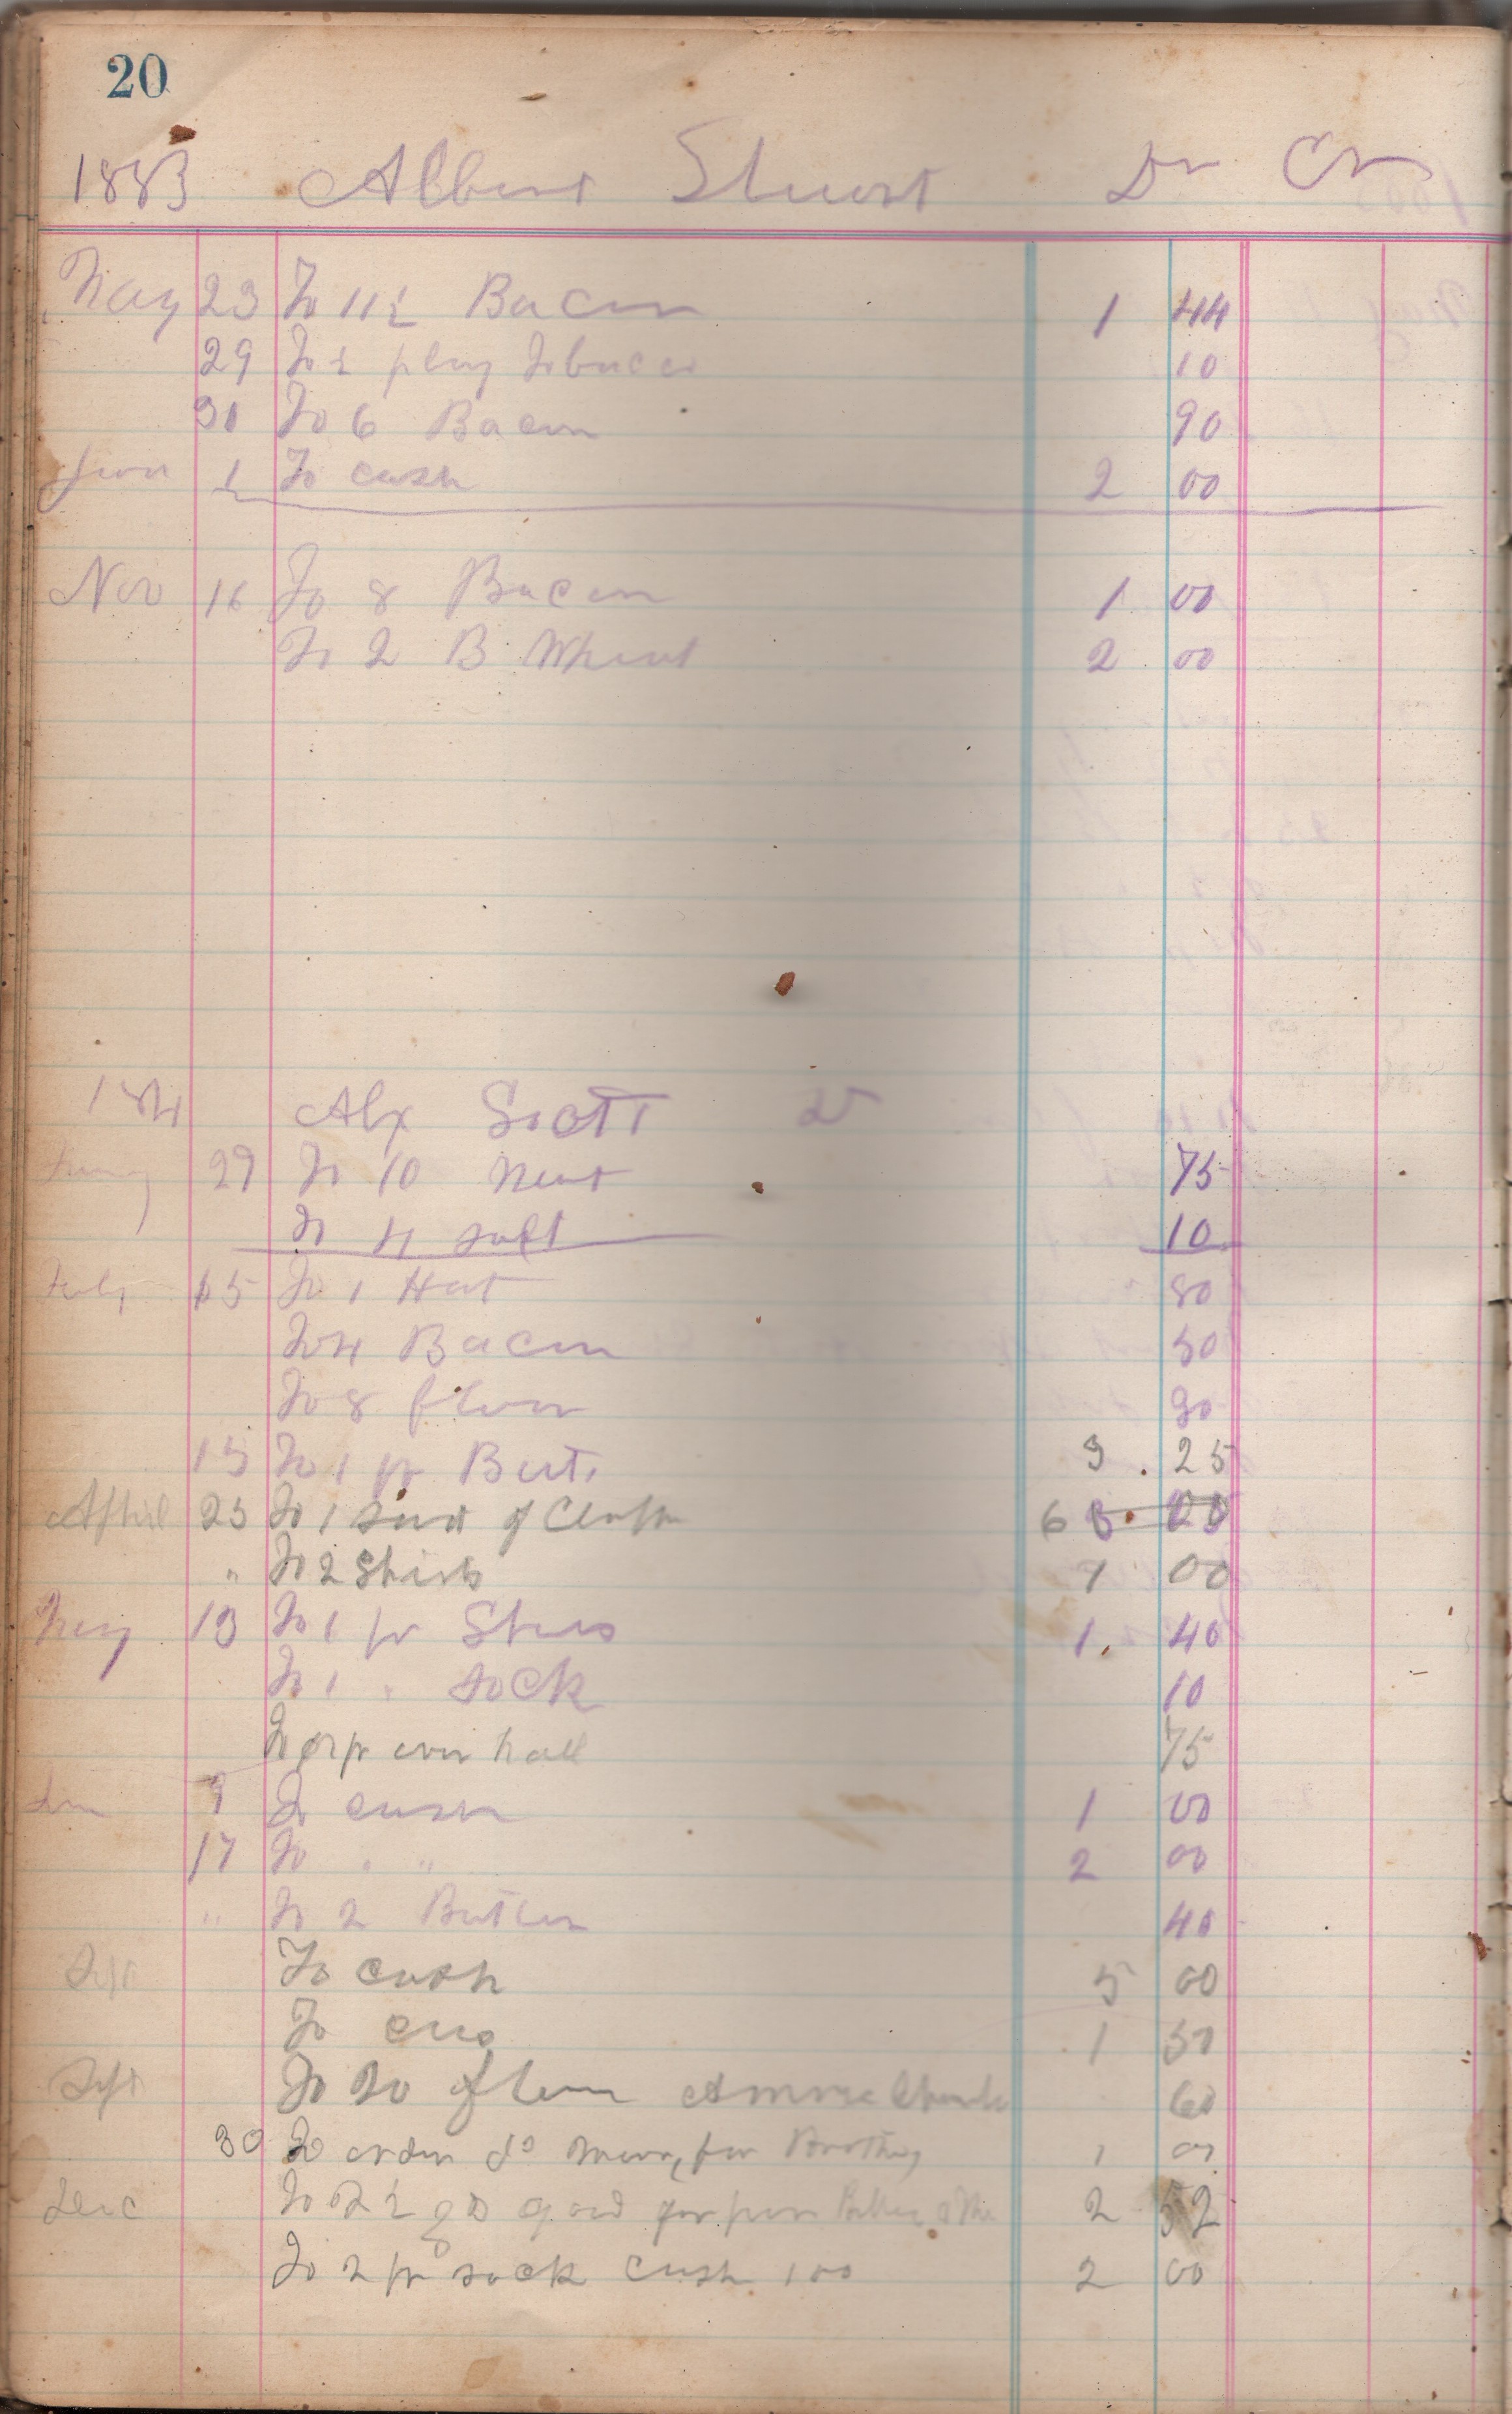 20
1883 Albert Stuart Dr Cr
May 23 To 11½ Bacon 1 44
29 To ½ plug Tobacco 10
30 To 6 Bacon 90
June 1 To cash 2 00
Nov 16 To 8 Bacon 1 00
To 2 B Wheat 2 00
184 Alx Scott Dr
29 To 10 Meat 75
To 4 salt 10
15 To 1 Hat 80
To 4 Bacon 50
To 8 flour
15 To 1 pr Boots 3.25
April 23 To 1 suit of 6
" To 2 Shirts 1 00
May 13 To 1 pr Shoes 1.40
To 1 " sock 10
To pr over hall 75
9 To cash 1 00
17 To " " 2 00
" To 2 Butter 40
Sept To cash 5 00
To 1 50
Sept To 20 flour 60
30 To order for 1 00
Dec To 2 52
To 2 pr sock cash 100 2 00